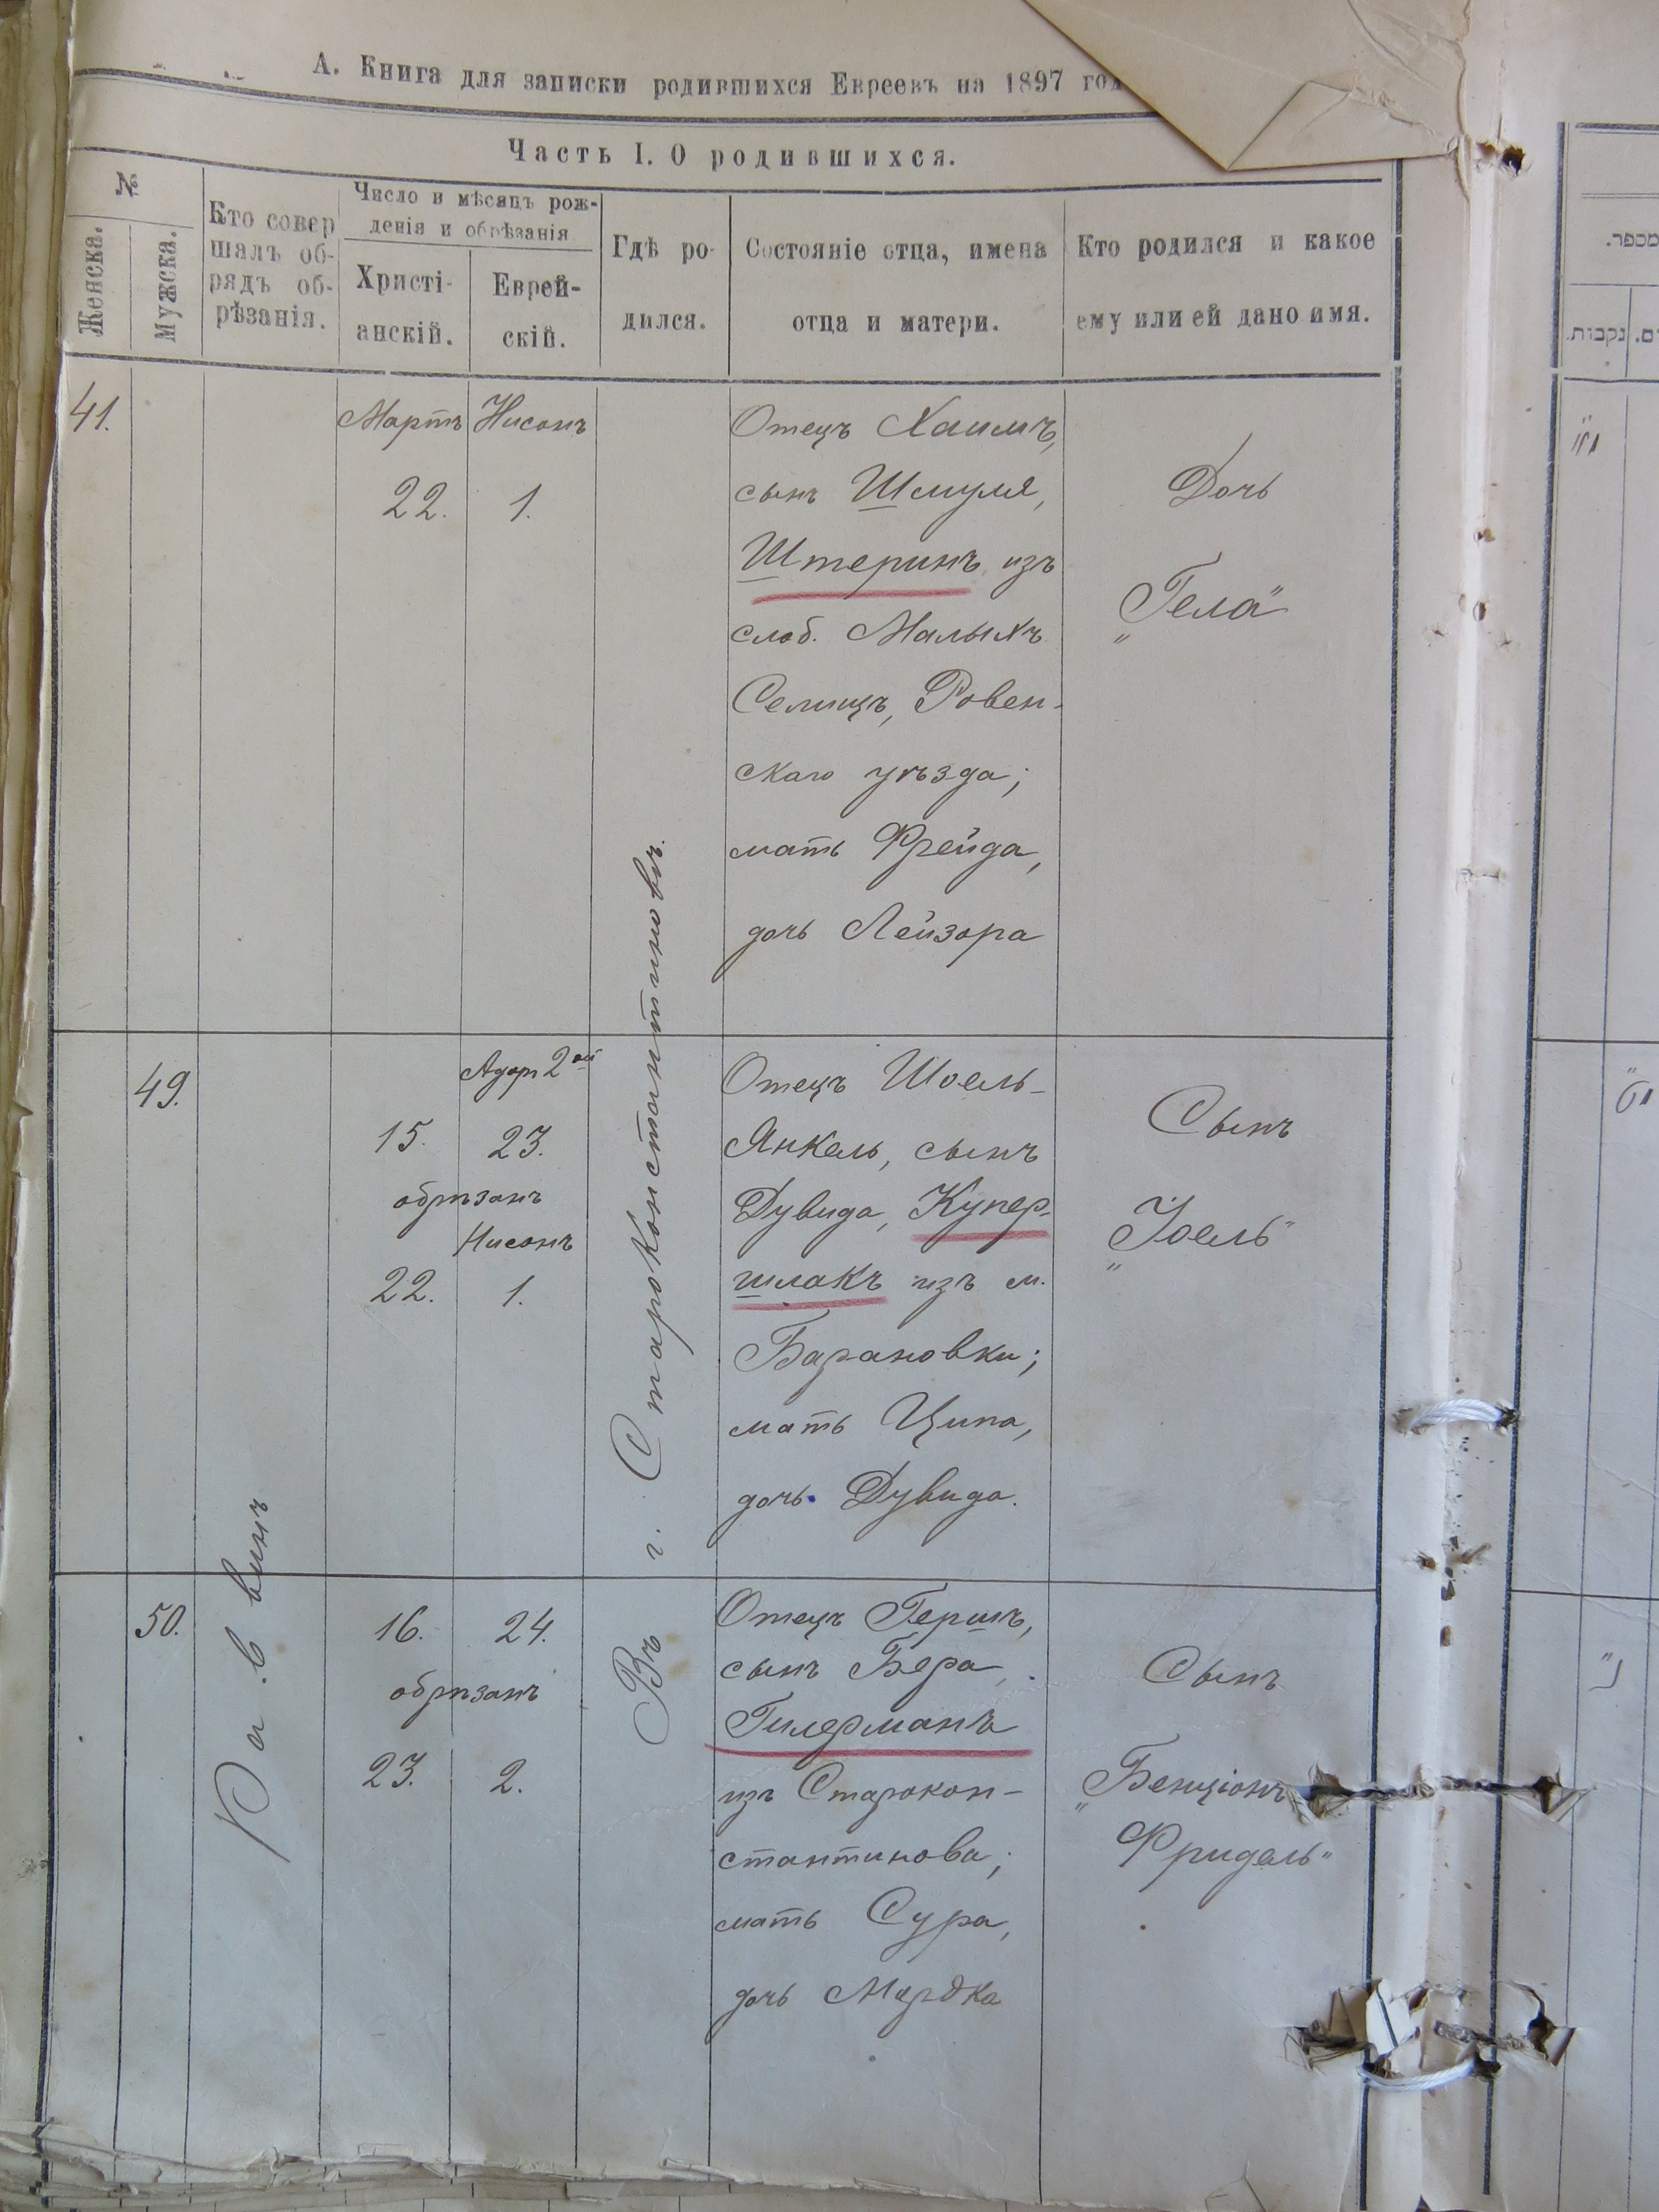 А. Книга для записки родившихся Евреевъ на 1897 год
Часть I. О родившихся.
№
Женска.
Мужска.
Кто совер
шалъ об-
рядъ об-
рѣзанія.
Число и мѣсяцъ рож-
денія и обрѣзанія
Христі-
анскій.
Еврей-
скій.
Гдѣ ро-
дился.
Состояніе отца, имена
отца и матери.
Кто родился и какое
ему или ей дано имя.
מספר.
נקבות.
41.
Мартъ
22.
Нисонъ
1.
Отецъ Хаимъ,
сынъ Шмуля,
Штеринъ изъ
слоб. Малыхъ
Селищъ, Ровен-
скаго уѣзда;
мать Фрейда,
дочь Лейзора
Дочь
„Гела“
49.
Адаръ 2ой
15. 23.
обрѣзанъ
Нисонъ
22. 1.
Отецъ Шоель-
Янкель, сынъ
Дувида, Купер-
шлакъ изъ м.
Барановки;
мать Ципа,
дочь Дувида.
Сынъ
„Іоель“
50.
16. 24.
обрѣзанъ
23. 2.
Отецъ Гершъ,
сынъ Бера,
Гилерманъ
изъ Старокон-
стантинова;
мать Сура,
дочь Мордка
Сынъ
„Бенціонъ
Фридель“
Раввинъ
Въ г. Староконстантиновѣ.